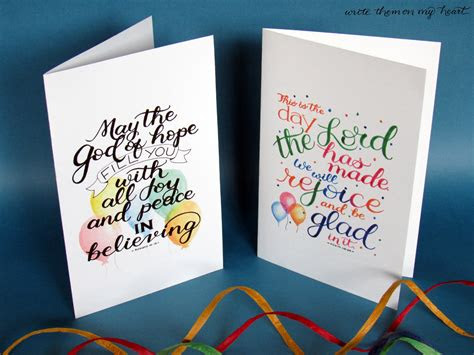 wrote them on my heart
May the
god of hope
FILL YOU
with
all joy
and peace
IN
believing
This is the
day
the Lord
has
made
we will
rejoice
and be
glad
in it